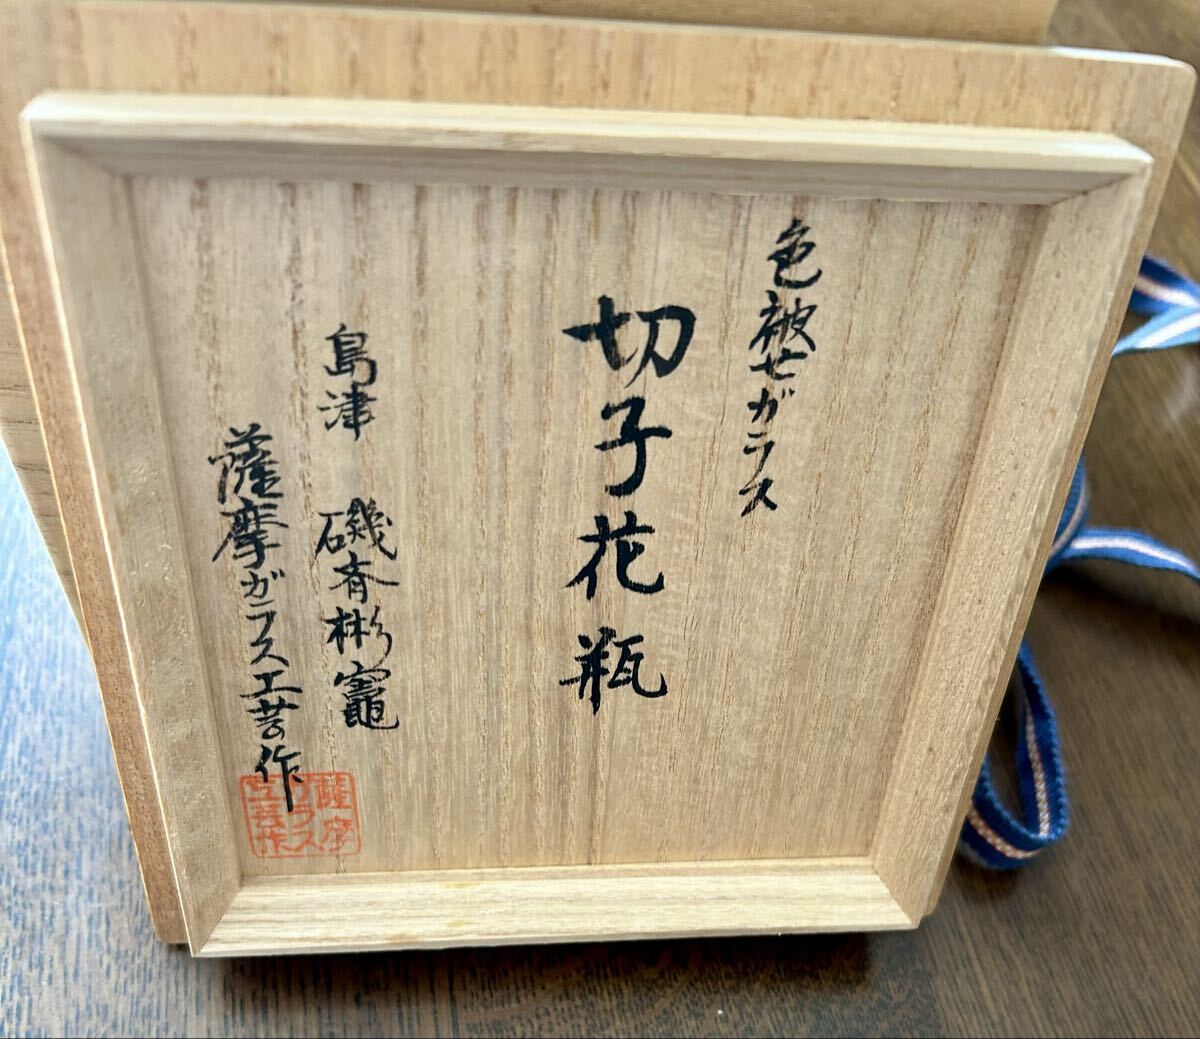 色被せガラス
切子花瓶
島津 磯斉彬竈
薩摩ガラス工芸作
薩摩
ガラス
工芸作